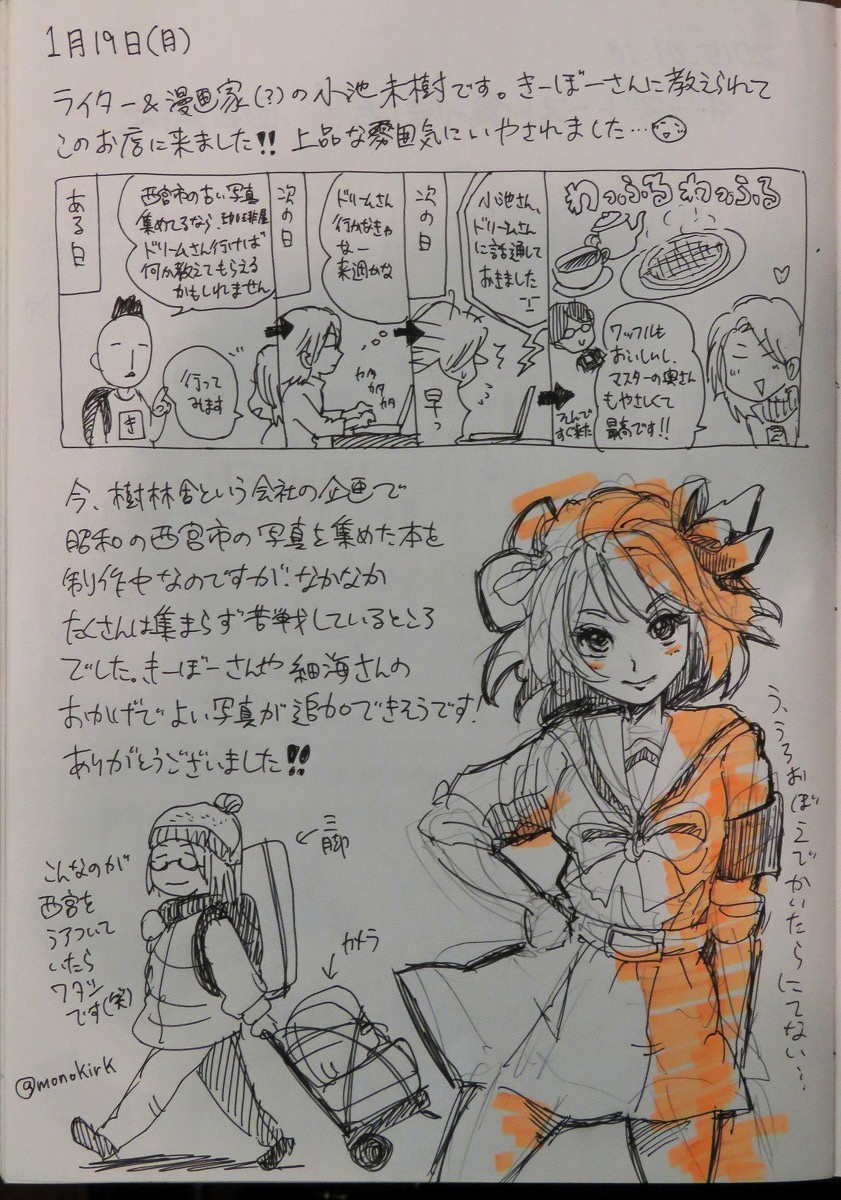 1月19日(月)
ライター&漫画家(?)の小池未樹です。きーぼーさんに教えられて
このお店に来ました!! 上品な雰囲気にいやされました…
ある日
西宮市の古い写真
集めてるなら、珈琲屋
ドリームさん行けば
何か教えてもらえる
かもしれません
行って
みます
き
次の日
ドリームさん
行かなきゃ
なー
来週かな
カタ
カタ
カタ
次の日
小池さん、
ドリームさん
に話通して
おきました
早っ
わっふるわっふる
ワッフルも
おいしいし、
マスターの奥さん
もやさしくて
最高です!!
そんで
すぐ来た
今、樹林舎という会社の企画で
昭和の西宮市の写真を集めた本を
制作中なのですが、なかなか
たくさんは集まらず苦戦しているところ
でした。きーぼーさんや細海さんの
おかげでよい写真が追加できそうです!
ありがとうございました!!
う、うろおぼえでかいたらにてない…
←三脚
カメラ
こんなのが
西宮を
うろついて
いたら
ワタシ
です(笑)
@monokirk